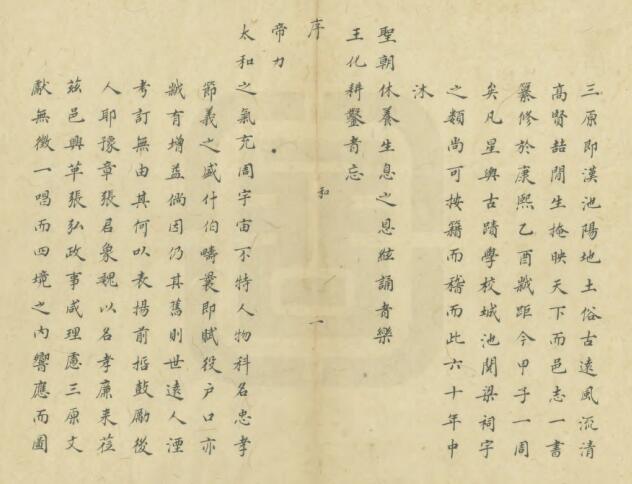 三原即漢池陽地土俗古遠風流清
高賢喆閒生掩映天下而邑志一書
纂修於康熙乙酉歲距今甲子一周
矣凡星輿古蹟學校城池關梁祠宇
之類尚可按籍而稽而此六十年中
沐
聖朝休養生息之恩絃誦者樂
王化耕鑿者忘
序
和
一
帝力
太和之氣充周宇宙不特人物科名忠孝
節義之盛什伯疇曩即賦役户口亦
歲有增益倘因仍其舊則世遠人湮
考訂無由其何以表揚前喆鼓勵後
人耶豫章張君象魏以名孝廉来莅
茲邑興革張弘政事咸理慮三原文
獻無徵一唱而四境之内響應而圖